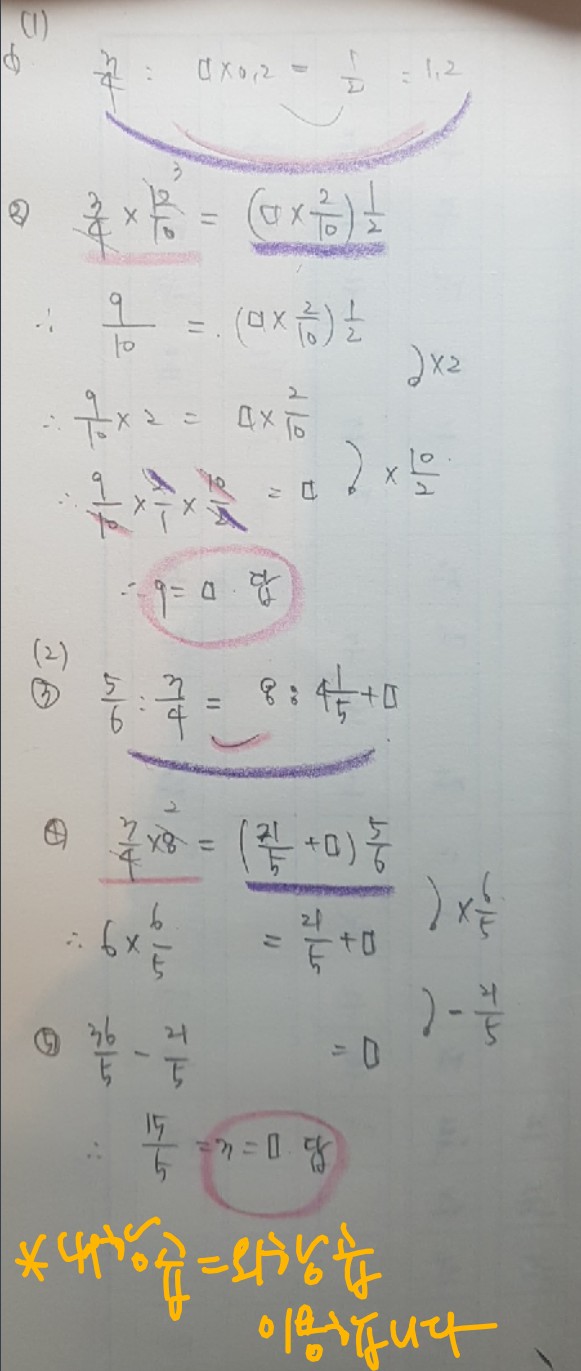 (1)
① 3/4 : □×0.2 = 1/2 = 1.2
② 3/4 × 12/10 3 = (□×2/10) 1/2
∴ 9/10 = (□×2/10) 1/2
)×2
∴ 9/10 × 2 = □×2/10
) × 10/2
∴ 9/10 × 2/1 × 10/2 = □
∴ 9 = □. 답
(2)
③ 5/6 : 3/4 = 8 : 4 1/5 + □
④ 3/4 × 8 2 = (21/5 + □) 5/6
)× 6/5
∴ 6 × 6/5 = 21/5 + □
) - 21/5
⑤ 36/5 - 21/5 = □
∴ 15/5 = 3 = □. 답
*내항곱=외항곱
이용합니다